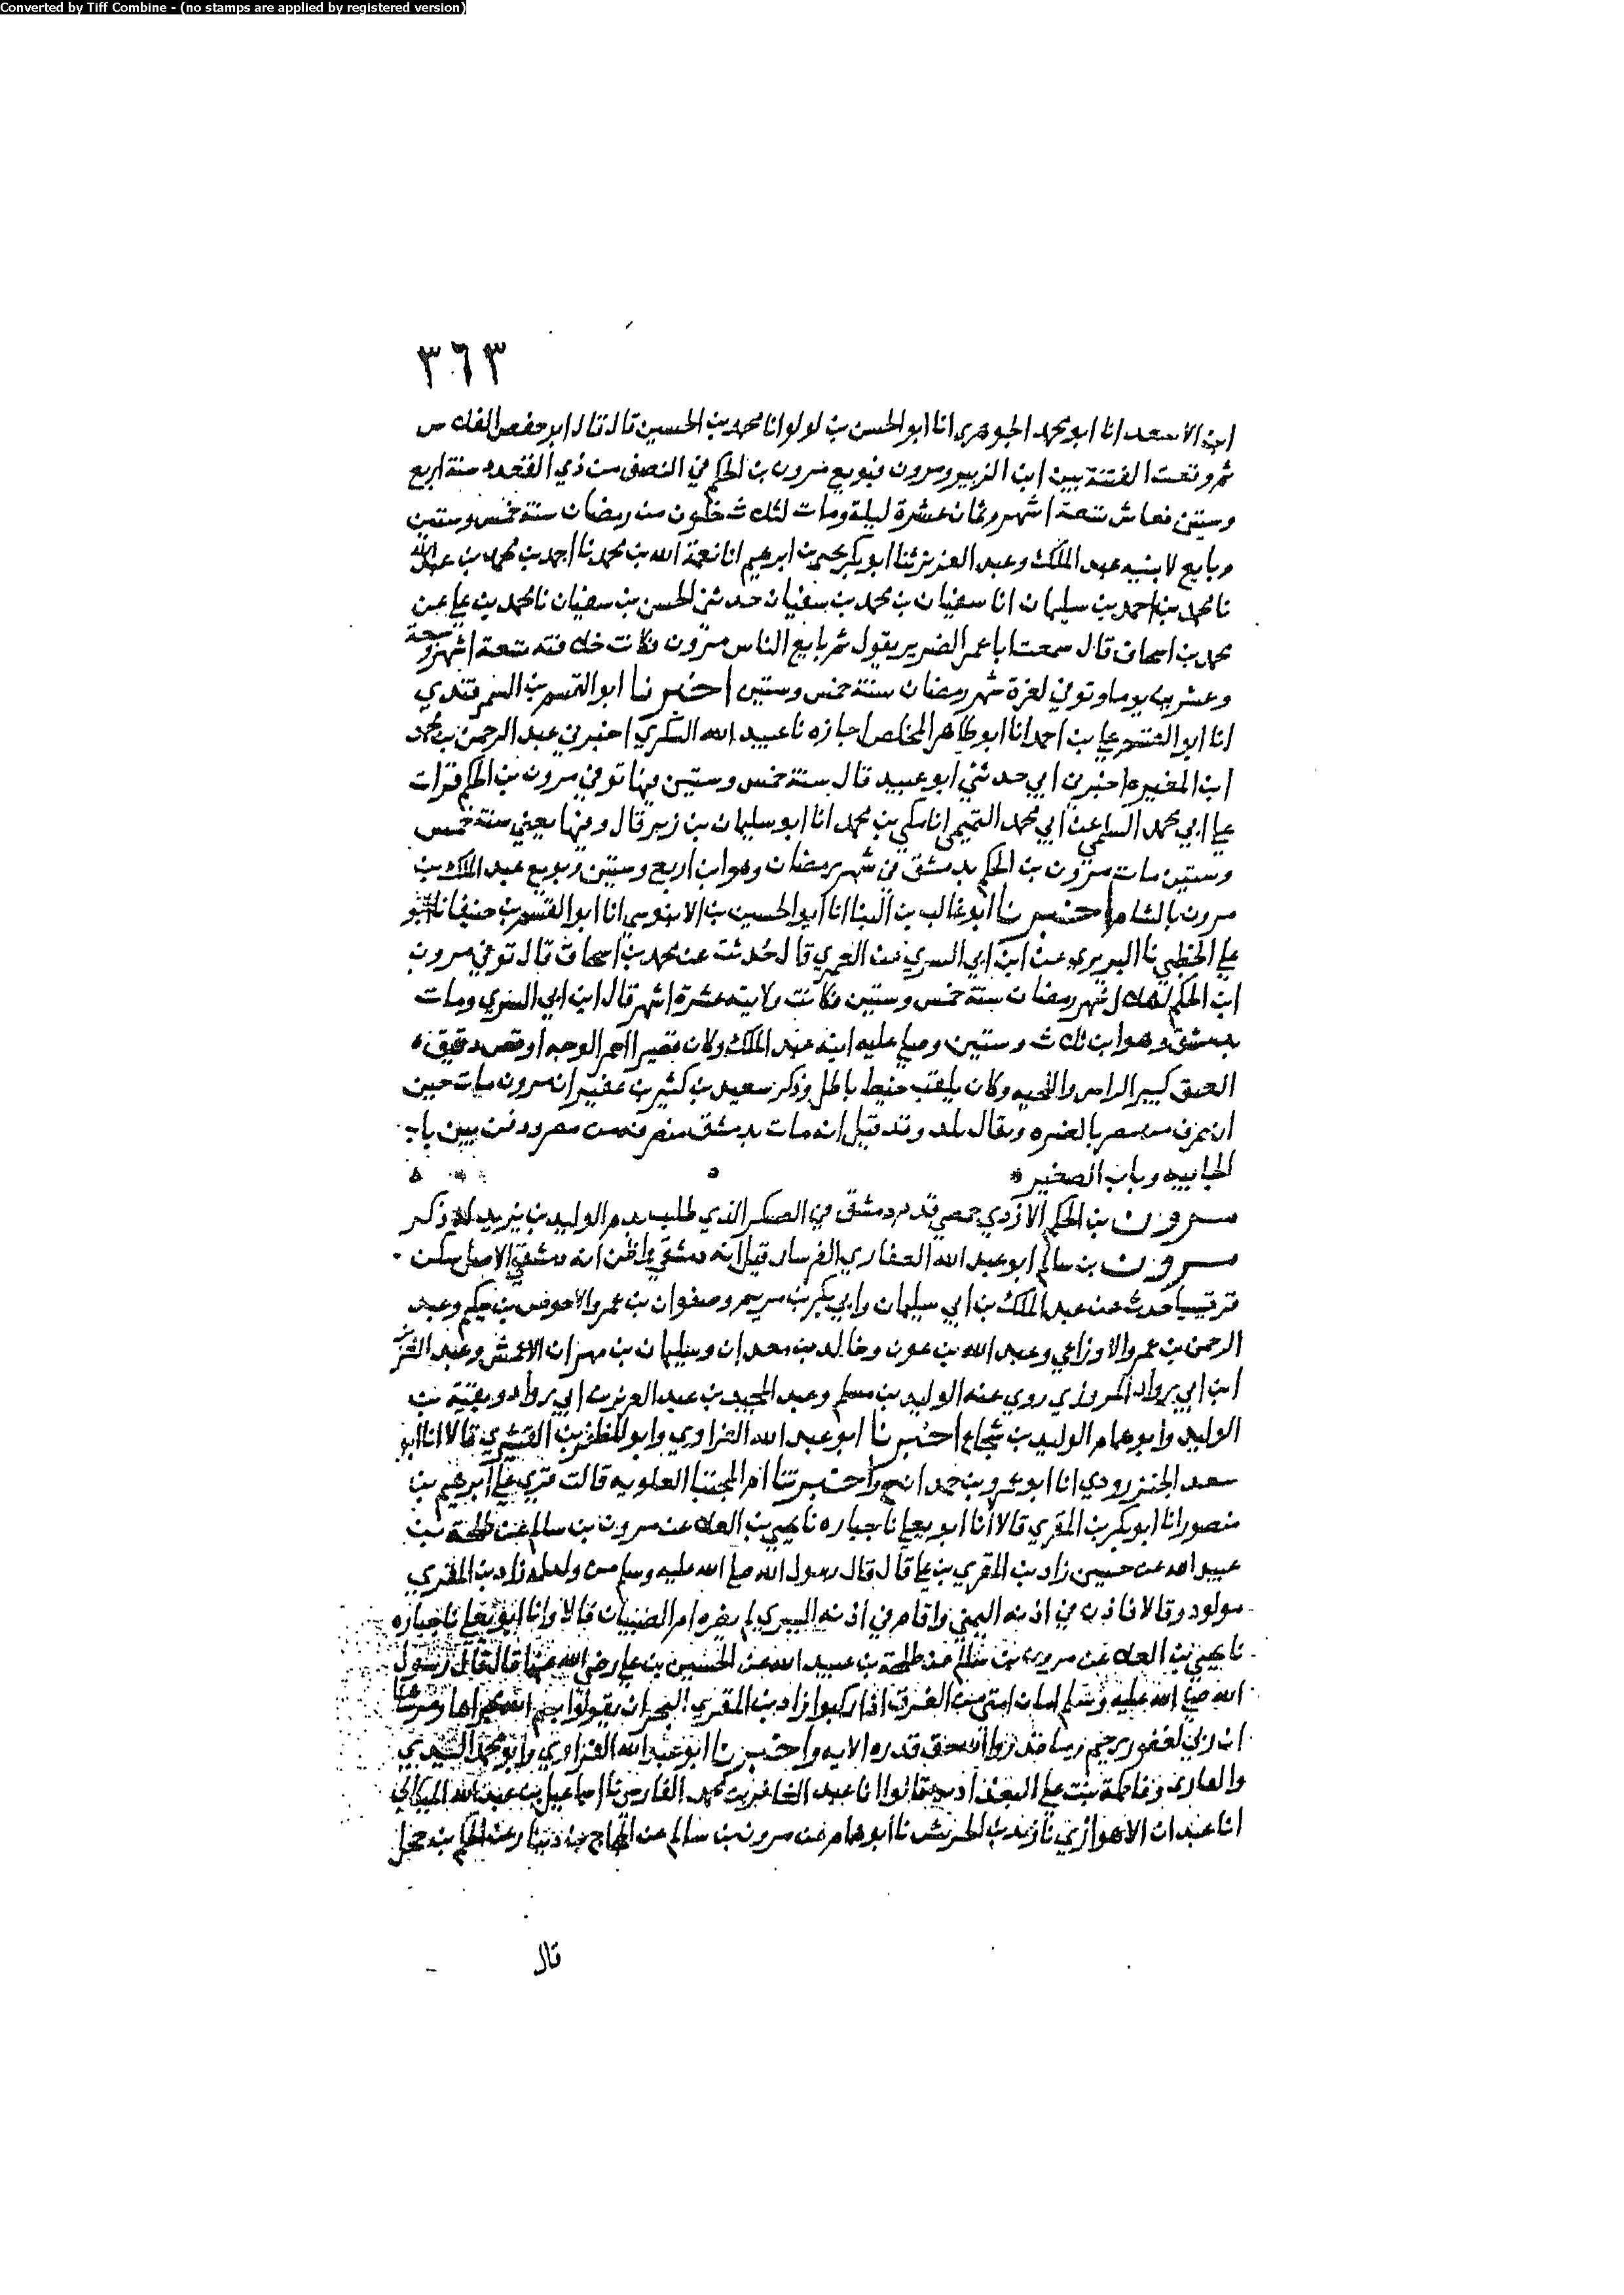 Converted by Tiff Combine - (no stamps are applied by registered version)
٣٦٣
ابن الاسعد انا ابو محمد الجوهري انا ابو الحسن بن لولو انا محمد بن الحسين قال قال ابو حفص الفلاس
ثم وقعت الفتنة بين ابن الزبير ومرون فبويع مرون بن الحكم في النصف من ذي القعده سنة اربع
وستين فعاش تسعة اشهر وثمان عشرة ليلة ومات لثلاث خلون من رمضان سنة خمس وستين
وبايع لابنيه عبد الملك وعبد العزيز ثنا ابو بكر يحيى بن ابرهيم انا نعمة الله بن محمد نا احمد بن محمد بن عبد الله
نا محمد بن احمد بن سليمان انا سفيان بن محمد بن سفيان حدثني الحسن بن سفيان نا محمد بن علي عن
محمد بن اسحاق قال سمعت ابا عمر الضرير يقول ثم بايع الناس مرون فكانت خلافته تسعة اشهر وسبعة
وعشرين يوما وتوفي لغرة شهر رمضان سنة خمس وستين اخبرنا ابو القسم بن السمرقندي
انا ابو القسم علي بن احمد انا ابو طاهر المخلص اجازه نا عبيد الله السكري اخبرني عبد الرحمن بن محمد
ابن المغيره اخبرني ابي حدثني ابو عبيد قال سنة خمس وستين فيها توفي مرون بن الحكم قرات
علي ابي محمد السلمي عن ابي محمد التميمي انا مكي بن محمد انا ابو سليمان بن زبر قال وفيها يعني سنة خمس
وستين مات مرون بن الحكم بدمشق في شهر رمضان وهو ابن اربع وستين وبويع عبد الملك بن
مرون بالشام اخبرنا ابو غالب بن البنا انا ابو الحسين بن الابنوسي انا ابو القسم بن جنيقا نا ابو
علي الخطبي نا البربري عن ابن ابي السري عن العمري قال حُدثت عن محمد بن اسحاق قال توفي مرون
ابن الحكم لهلال شهر رمضان سنة خمس وستين فكانت ولايته عشرة اشهر قال ابن ابي السري ومات
بدمشق وهو ابن ثلاث وستين وصلى عليه ابنه عبد الملك وكان قصيرا احمر الوجه اوقص دقيق
العنق كبير الراس واللحيه وكان يلقب خيط باطل وذكر سعيد بن كثير بن عفير ان مرون مات حين
انصرف من مصر بالصنبره ويقال بلد وقد قيل انه مات بدمشق منصرفه من مصر ودفن بين باب
الجابيه وباب الصغير
مرون بن الحكم الازدي حمصي قدم دمشق في العسكر الذي طلب بدم الوليد بن يزيد له ذكر
مرون بن سالم ابو عبد الله الغفاري الفرسان قيل انه دمشقي واظن انه دمشقي الاصل سكن
قرقيسيا حدث عن عبد الملك بن ابي سليمان وابي بكر بن مريم وصفوان بن عمرو والاحوص بن حكيم وعبد
الرحمن بن عمرو الاوزاعي وعبد الله بن عون وخالد بن معدان وسليمان بن مهران الاعمش وعبد العزيز
ابن ابي رواد المروزي روي عنه الوليد بن مسلم وعبد المجيد بن عبد العزيز بن ابي رواد وبقية بن
الوليد وابو همام الوليد بن شجاع اخبرنا ابو عبد الله الفراوي وابو المظفر بن القشيري قالا انا ابو
سعد الجنزرودي انا ابو عمرو بن حمدان ح واخبرتنا ام المجتبا العلويه قالت قري علي ابرهيم بن
منصور انا ابو بكر بن المقري قالا انا ابو يعلي نا جباره نا يحيى بن العلا عن مرون بن سالم عن طلحة بن
عبيد الله عن حسين زاد بن المقري بن علي قال قال رسول الله صلى الله عليه وسلم من ولد له زاد بن المقري
مولود وقالا فاذن في اذنه اليمني واقام في اذنه اليسري لم يضره ام الصبيان قالا وانا ابو يعلي نا جباره
نا يحيى بن العلا عن مرون بن سالم عن طلحة بن عبيد الله عن الحسين بن علي رضي الله عنهما قال قال رسول
الله صلى الله عليه وسلم امان امتي من الغرق اذا ركبوا زاد بن المقري البحر ان يقولوا بسم الله مجراها ومرساها
ان ربي لغفور رحيم وما قدروا الله حق قدره الايه واخبرنا ابو عبد الله الفراوي وابو محمد السيدي
والقاري وفاطمة بنت علي البغدادية قالوا انا عبد الغافر بن محمد الفارسي نا اسماعيل بن عبد الله الميكالي
انا عبدان الاهوازي نا زيد بن الحريش نا ابو همام عن مرون بن سالم عن الحجاج بن دينار عن الحكم بن جحل
قال